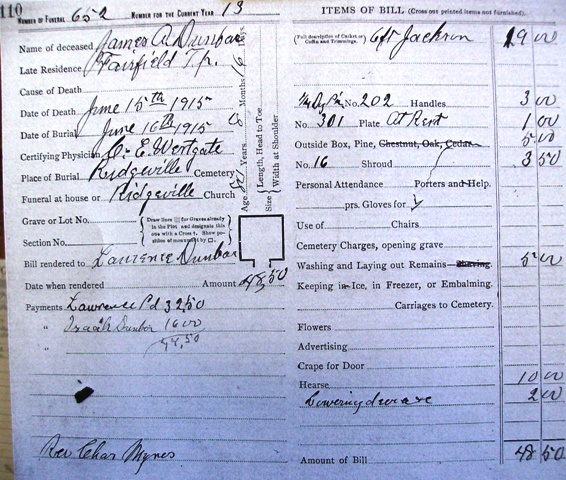 110
NUMBER OF FUNERAL 652 NUMBER FOR THE CURRENT YEAR 13
Name of deceased James A Dunbar
Late Residence Fairfield Tp.
Cause of Death
Date of Death June 15th 1915
Date of Burial June 16th 1915
Certifying Physician E. Westgate
Place of Burial Ridgeville Cemetery
Funeral at house or Ridgeville Church
Age Years Months Days
Size Length, Head to Toe
Width at Shoulder
Grave or Lot No.
Section No.
Draw lines for Graves already in the Plot and designate this one with a Cross †. Show position of monument by □.
Bill rendered to Lawrence Dunbar
Date when rendered Amount 48,50
Payments Lawrence Pd 32,50
" Isaah Dunbar 16 00
" 48,50
Rev Chas Myres
ITEMS OF BILL (Cross out printed items not furnished).
(Full description of Casket or Coffin and Trimmings. 6ft Jackson 19 00
No. 202 Handles 3 00
No. 301 Plate At Rest 1 00
Outside Box, Pine, Chestnut, Oak, Cedar 5 00
No. 16 Shroud 3 50
Personal Attendance Porters and Help.
prs. Gloves for
Use of Chairs
Cemetery Charges, opening grave
Washing and Laying out Remains Shaving. 5 00
Keeping in Ice, in Freezer, or Embalming.
Carriages to Cemetery.
Flowers
Advertising
Crape for Door
Hearse 10 00
Lowering device 2 00
Amount of Bill 48 50